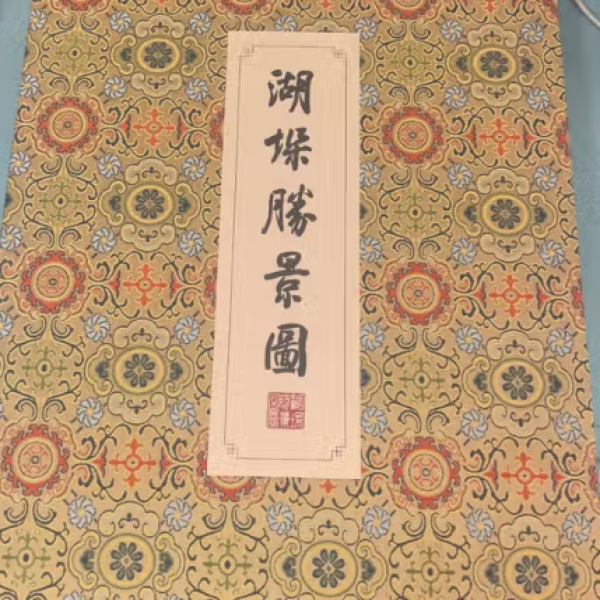 湖垛勝景圖